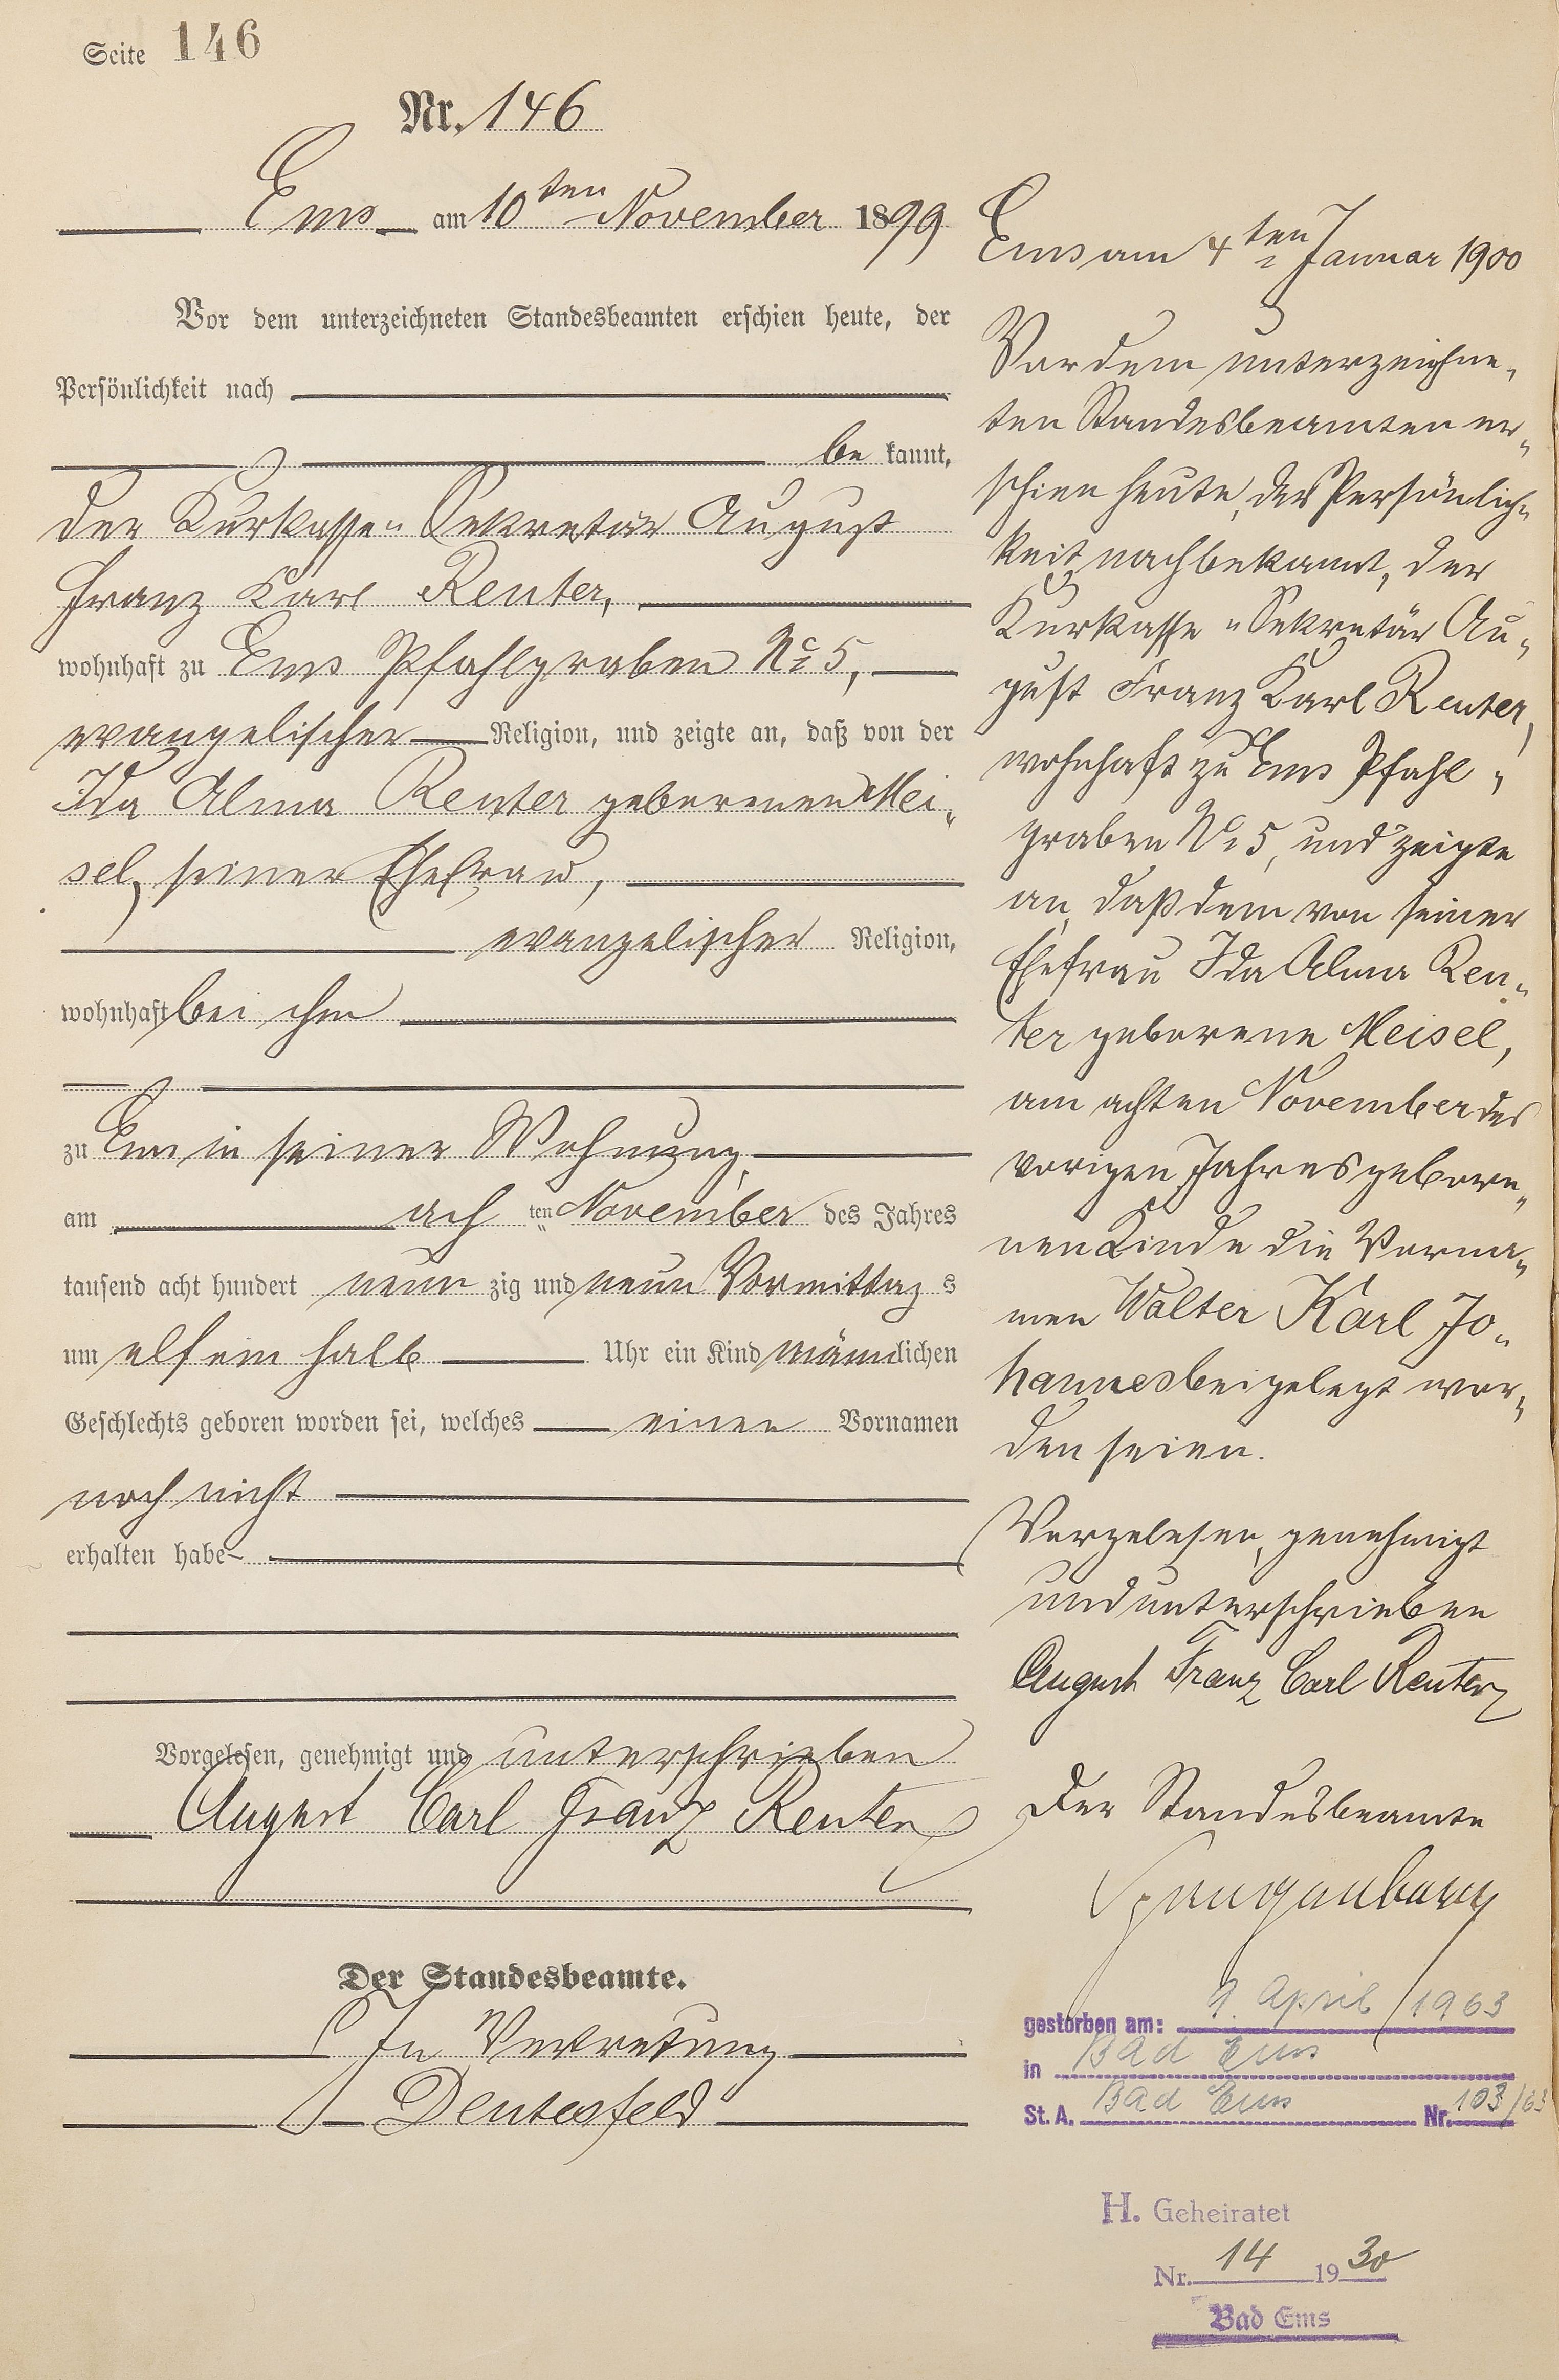 Seite 146
Nr. 146
Ems am 10ten November 1899
Vor dem unterzeichneten Standesbeamten erschien heute, der
Persönlichkeit nach
be kannt,
der Kurkassen Sekretär August
Franz Karl Reuter,
wohnhaft zu Ems Pfahlgraben No 5,
evangelischer Religion, und zeigte an, daß von der
Ida Alma Reuter geborenen Mei„
sel, seiner Ehefrau,
evangelischer Religion,
wohnhaft bei ihm
zu Ems in seiner Wohnung
am ach ten November des Jahres
tausend acht hundert neun zig und neun Vormittag s
um elf ein halb Uhr ein Kind männlichen
Geschlechts geboren worden sei, welches einen Vornamen
noch nicht
erhalten habe
Vorgelesen, genehmigt und unterschrieben
August Carl Franz Reuter
Der Standesbeamte.
In Vertretung
Deutesfeld
Ems am 4ten Januar 1900
Vor dem unterzeichne„
ten Standesbeamten er„
schien heute, der Persönlich„
keit nach bekannt, der
Kurkasse „ Sekretär Au„
gust Franz Karl Reuter,
wohnhaft zu Ems Pfahl„
graben No 5, und zeigte
an, daß dem von seiner
Ehefrau Ida Alma Reu„
ter geborene Meisel,
am achten November des
vorigen Jahres gebore„
nen Kinde die Vorna„
men Walter Karl Jo„
hannes beigelegt wor„
den seien.
Vorgelesen, genehmigt
und unterschrieben
August Franz Carl Reuter
Der Standesbeamte
Spangenberg
gestorben am: 9. April 1963
in Bad Ems
St. A. Bad Ems Nr. 103/63
H. Geheiratet
Nr. 14 1930
Bad Ems